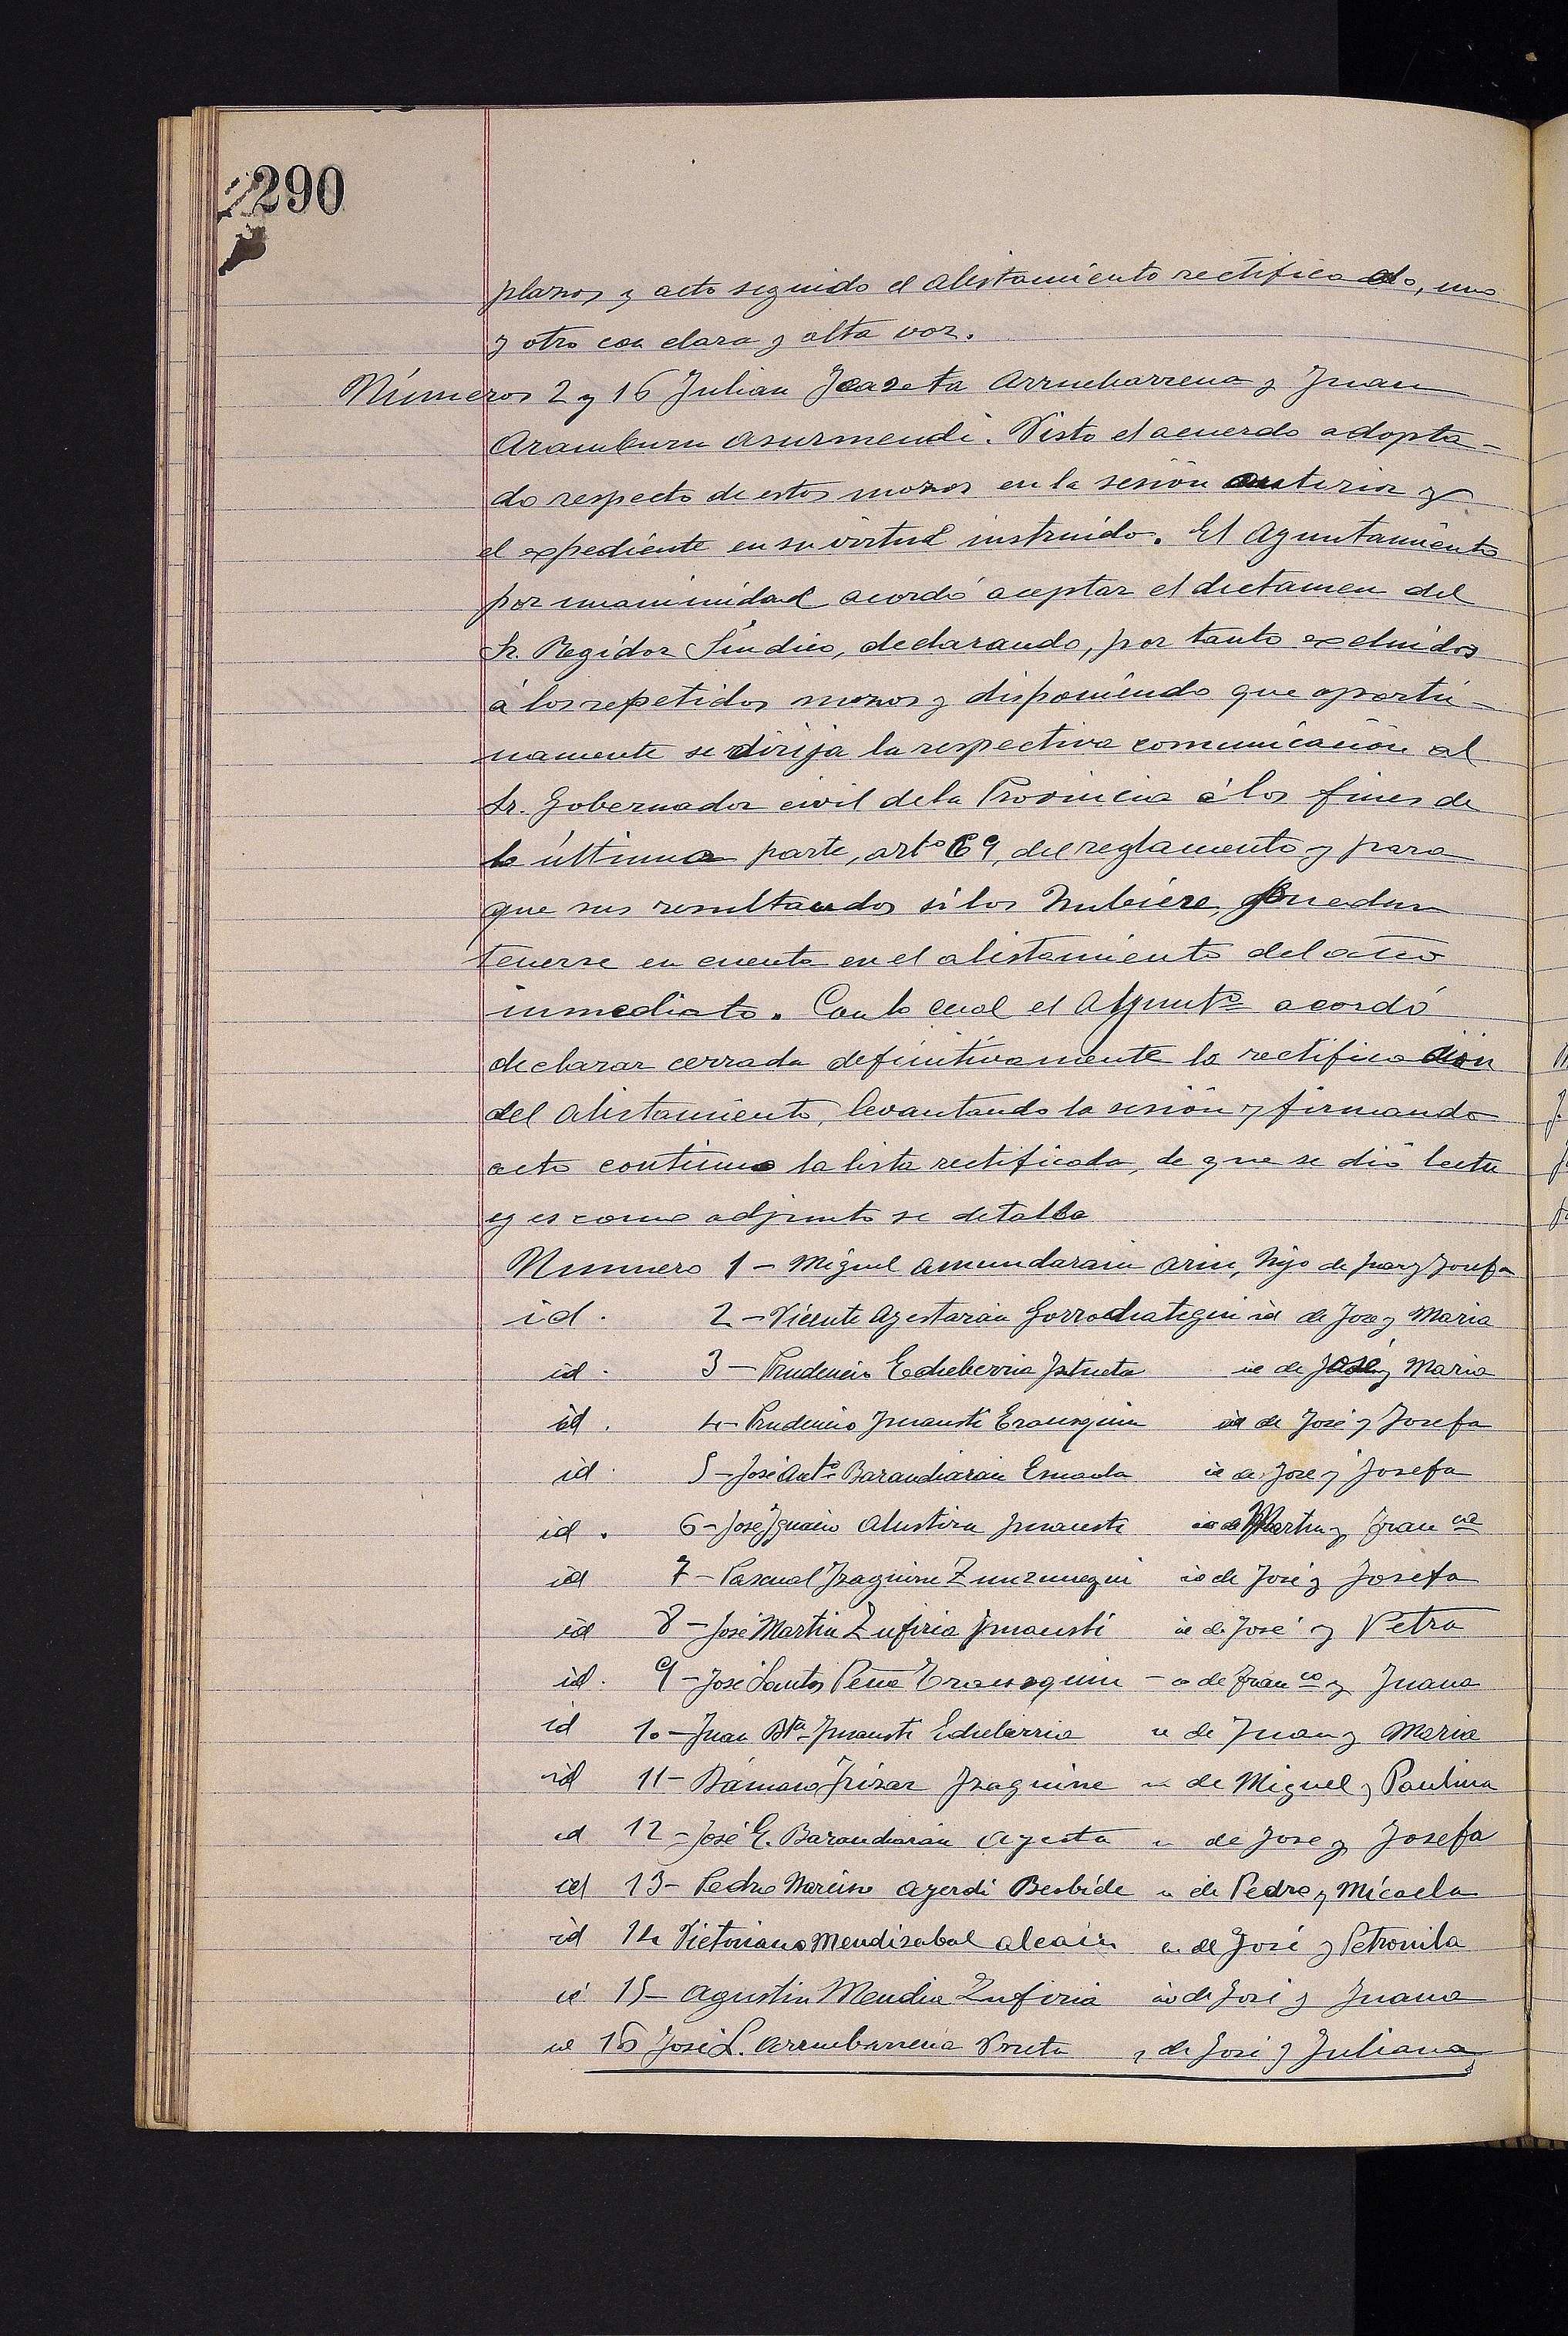 290
plazos y acto seguido el alistamiento rectificado, uno
y otro con clara y alta voz.
Números 2 y 16 Julian Icazeta Arruebarrena y Juan
Aramburu Asurmendi. Visto el acuerdo adopta-
do respecto de estos mozos en la sesión anterior y
el expediente en su virtud instruido. El Ayuntamiento
por unanimidad acordó aceptar el dictamen del
Sr. Regidor Síndico, declarando, por tanto excluidos
á los repetidos mozos y disponiendo que oportu-
namente se dirija la respectiva comunicación al
Sr. Gobernador civil de la Provincia á los fines de
la última parte, artº 69, del reglamento y para
que sus resultandos si los hubiere, puedan
tenerse en cuenta en el alistamiento del año
inmediato. Con lo cual el Ayuntº acordó
declarar cerrada definitivamente la rectificación
del alistamiento, levantando la sesión y firmando
acto continuo la lista rectificada, de que se dió lectu
y es como adjunto se detalla
Numero 1 - Miguel Amundarain Arin, hijo de Juan y Josefa
id. 2 - Vicente Ayestarán Gorrochategui id de José y Maria
id. 3 - Prudencio Echeberria Iztueta id de José y Maria
id. 4 - Prudencio Imausti Erausquin id de José y Josefa
id. 5 - José Antº Barandiarán Esnaola id de José y Josefa
id. 6 - José Ignacio Alustiza Imausti id de Martin y Franca
id 7 - Pascual Izaguirre Zunzunegui id de José y Josefa
id 8 - José Martin Zufiria Imausti id de José y Petra
id. 9 - José Santos Peña Erausquin - id de Franco y Juana
id 10 - Juan Bta Imausti Echeberria id de Juan y Maria
id 11 - Dámaso Irizar Izaguirre id de Miguel y Paulina
id 12 - José E. Barandiarán Ayesta id de José y Josefa
id 13 - Pedro Narciso Ayerdi Berbide id de Pedro y Micaela
id 14 Victoriano Mendizabal Alcain id de José y Petronila
id 15 - Agustin Mendia Zufiria id de José y Juana
id 16 José L. Arruebarrena Urreta id de José y Juliana